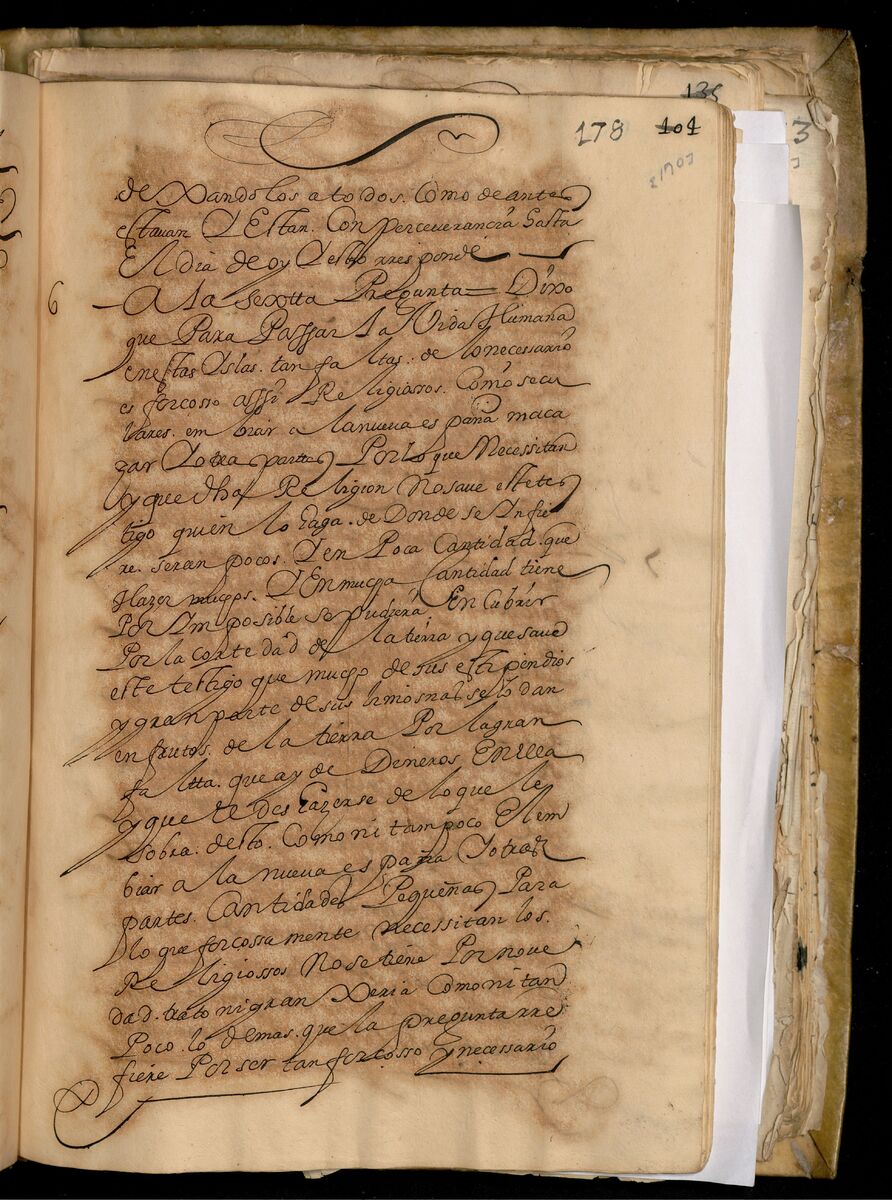 135
178 101
3
dexandolos a todos. Como de antes
estavan Y Estan. Con perceverancia hasta
El dia de oy Y esto rresponde
6
A la sextta Pregunta = Dixo
que Para Passar la Vida Humana
en estas Yslas. tan faltas. de lo necessario
es forcosso assi Religiossos. Como secu
lares. embiar a la nueva españa maca
zar Y otra parttes Por lo que Necessitan
y que dha Religion No save este tes
tigo quien lo haga. de Donde se Ynfie
re. seran pocos. Y en Poca Cantidad. que
Hazer muchos. Y En mucha Cantidad tiene
Por Ymposible se pudiera En Cubrir
Por la cortedad de la tierra y que save
este testigo que mucho de sus estipendios
y gran parte de sus limosnas se lo dan
en frutos. de la tierra Por la gran
faltta. que ay de Dineros En ella
y que el deshazerse de lo que le
sobra. desto. Como ni tampoco El em
biar a la nueva españa Y otras
partes. Cantidades Pequeñas Para
lo que forcossamente necessitan los.
Religiossos No se tiene Por nove
dad. trato ni gran Xeria Como ni tan
Poco. lo demas. que la pregunta rre
fiere Por ser tan forcosso y necessario